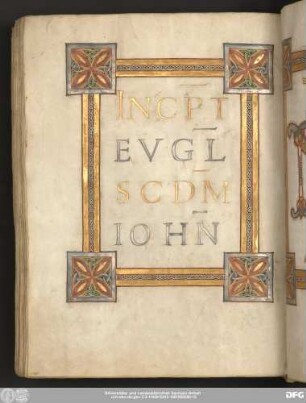 INCP̅T
EVG̅L
SCD̅M
IOHN̅